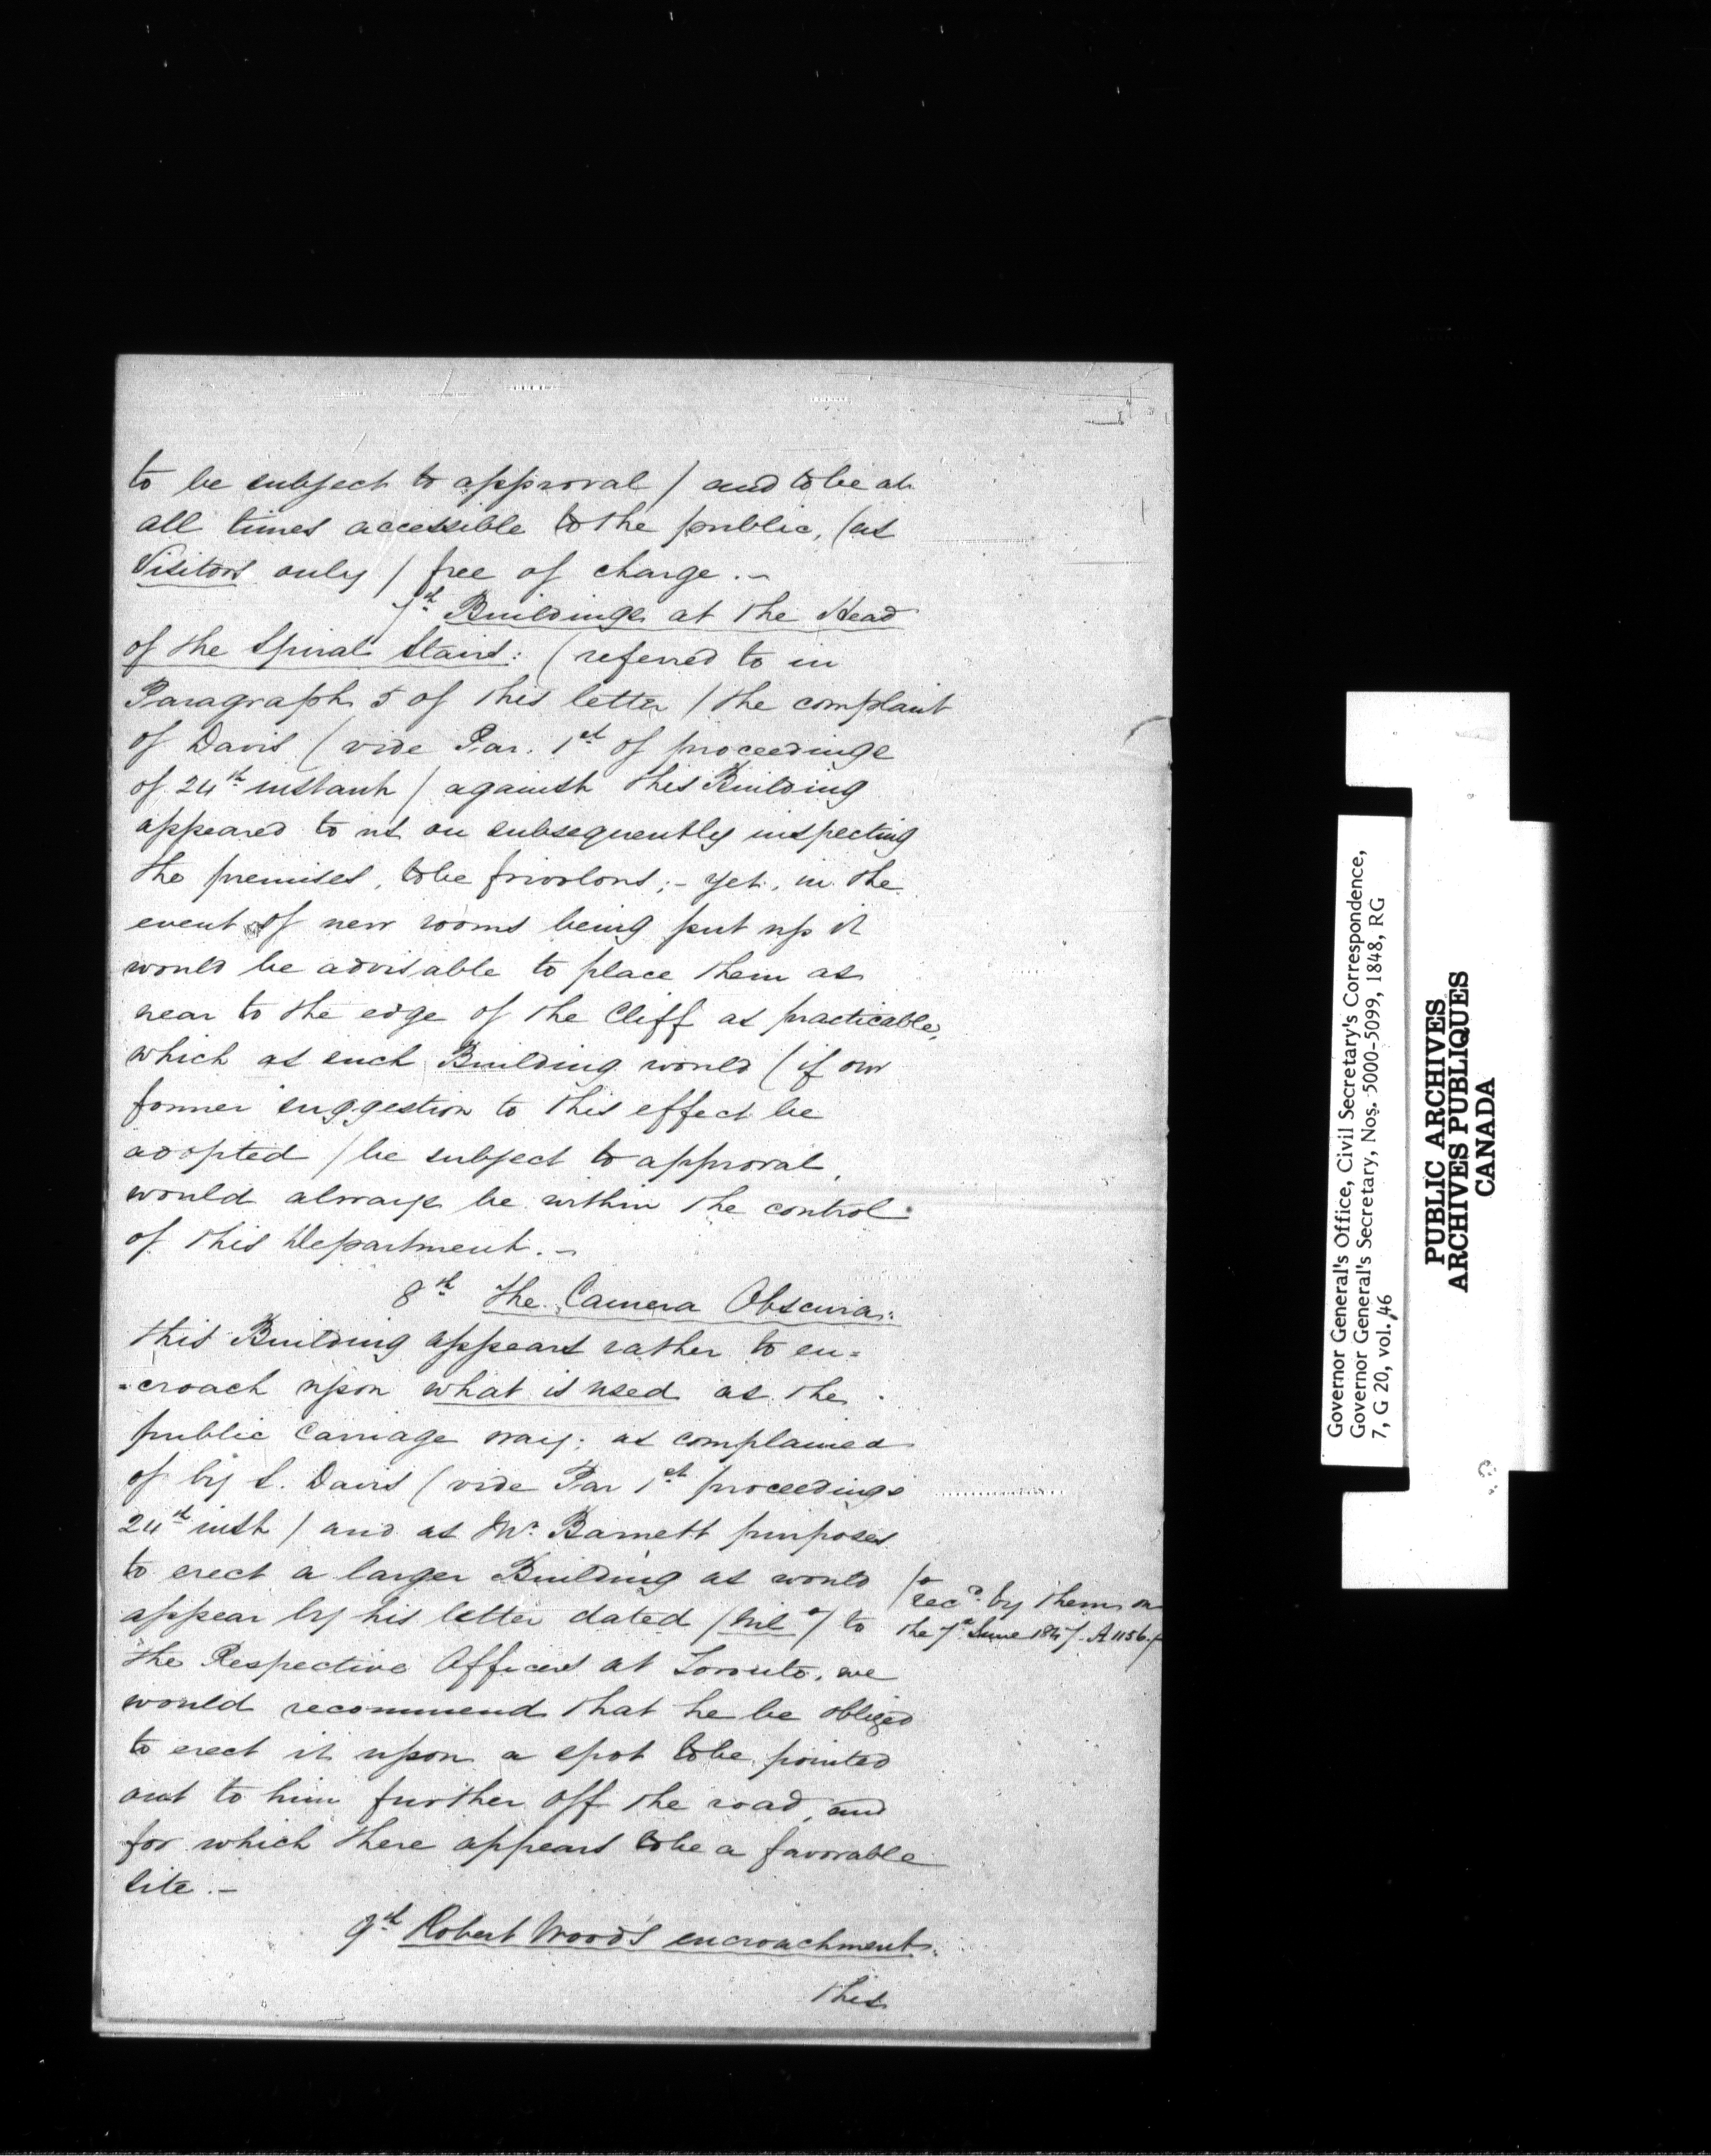 to be subject to approval / and to be at
all times accessible to the public, (as
Visitors only / free of charge. ~
7th Buildings at the Head
of the Spiral Stairs: (referred to in
Paragraph 5 of this letter / the complaint
of Davis (vide Par. 1st of proceedings
of 24th instant / against this Building
appeared to us on subsequently inspecting
the premises, to be frivolous; - yet, in the
event of new rooms being put up it
would be advisable to place them as
near to the edge of the Cliff as practicable,
which as such Building would (if our
former suggestion to this effect be
adopted / be subject to approval,
would always be within the control
of this Department. ~
8th The Camera Obscura:
this Building appears rather to en=
=croach upon what is used as the
public Carriage way; as complained
of by S. Davis (vide Par 1st proceedings
24th inst / and as Mr. Barnett purposes
to erect a larger Building as would
appear by his letter dated / Nil * / to
the Respective Officers at Toronto, we
would recommend that he be obliged
to erect it upon a spot to be pointed
out to him further off the road, and
for which there appears to be a favorable
site. -
9th Robert Wood's encroachment.
this
/* recd. by them on
the 7th June 1847. A 1156. /
Governor General's Office, Civil Secretary's Correspondence,
Governor General's Secretary, Nos. 5000-5099, 1848, RG
7, G 20, vol. 46
PUBLIC ARCHIVES
ARCHIVES PUBLIQUES
CANADA